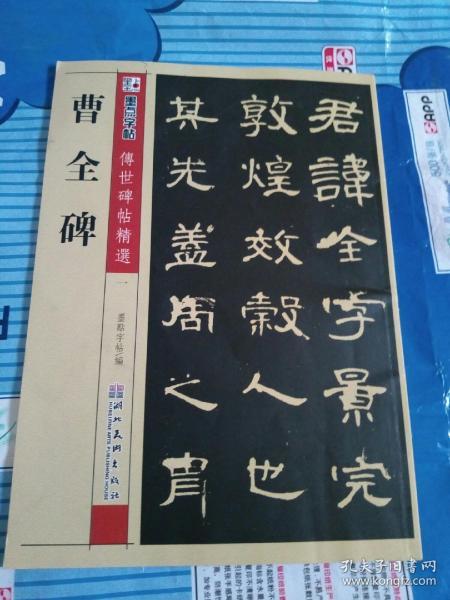 曹全碑
墨点字帖
傳世碑帖精選
一
墨點字帖/編
湖北美術出版社
HUBEI FINE ARTS PUBLISHING HOUSE
君諱全字景完
敦煌效穀人也
其先蓋周之胄
APP
APP
孔夫子旧书网